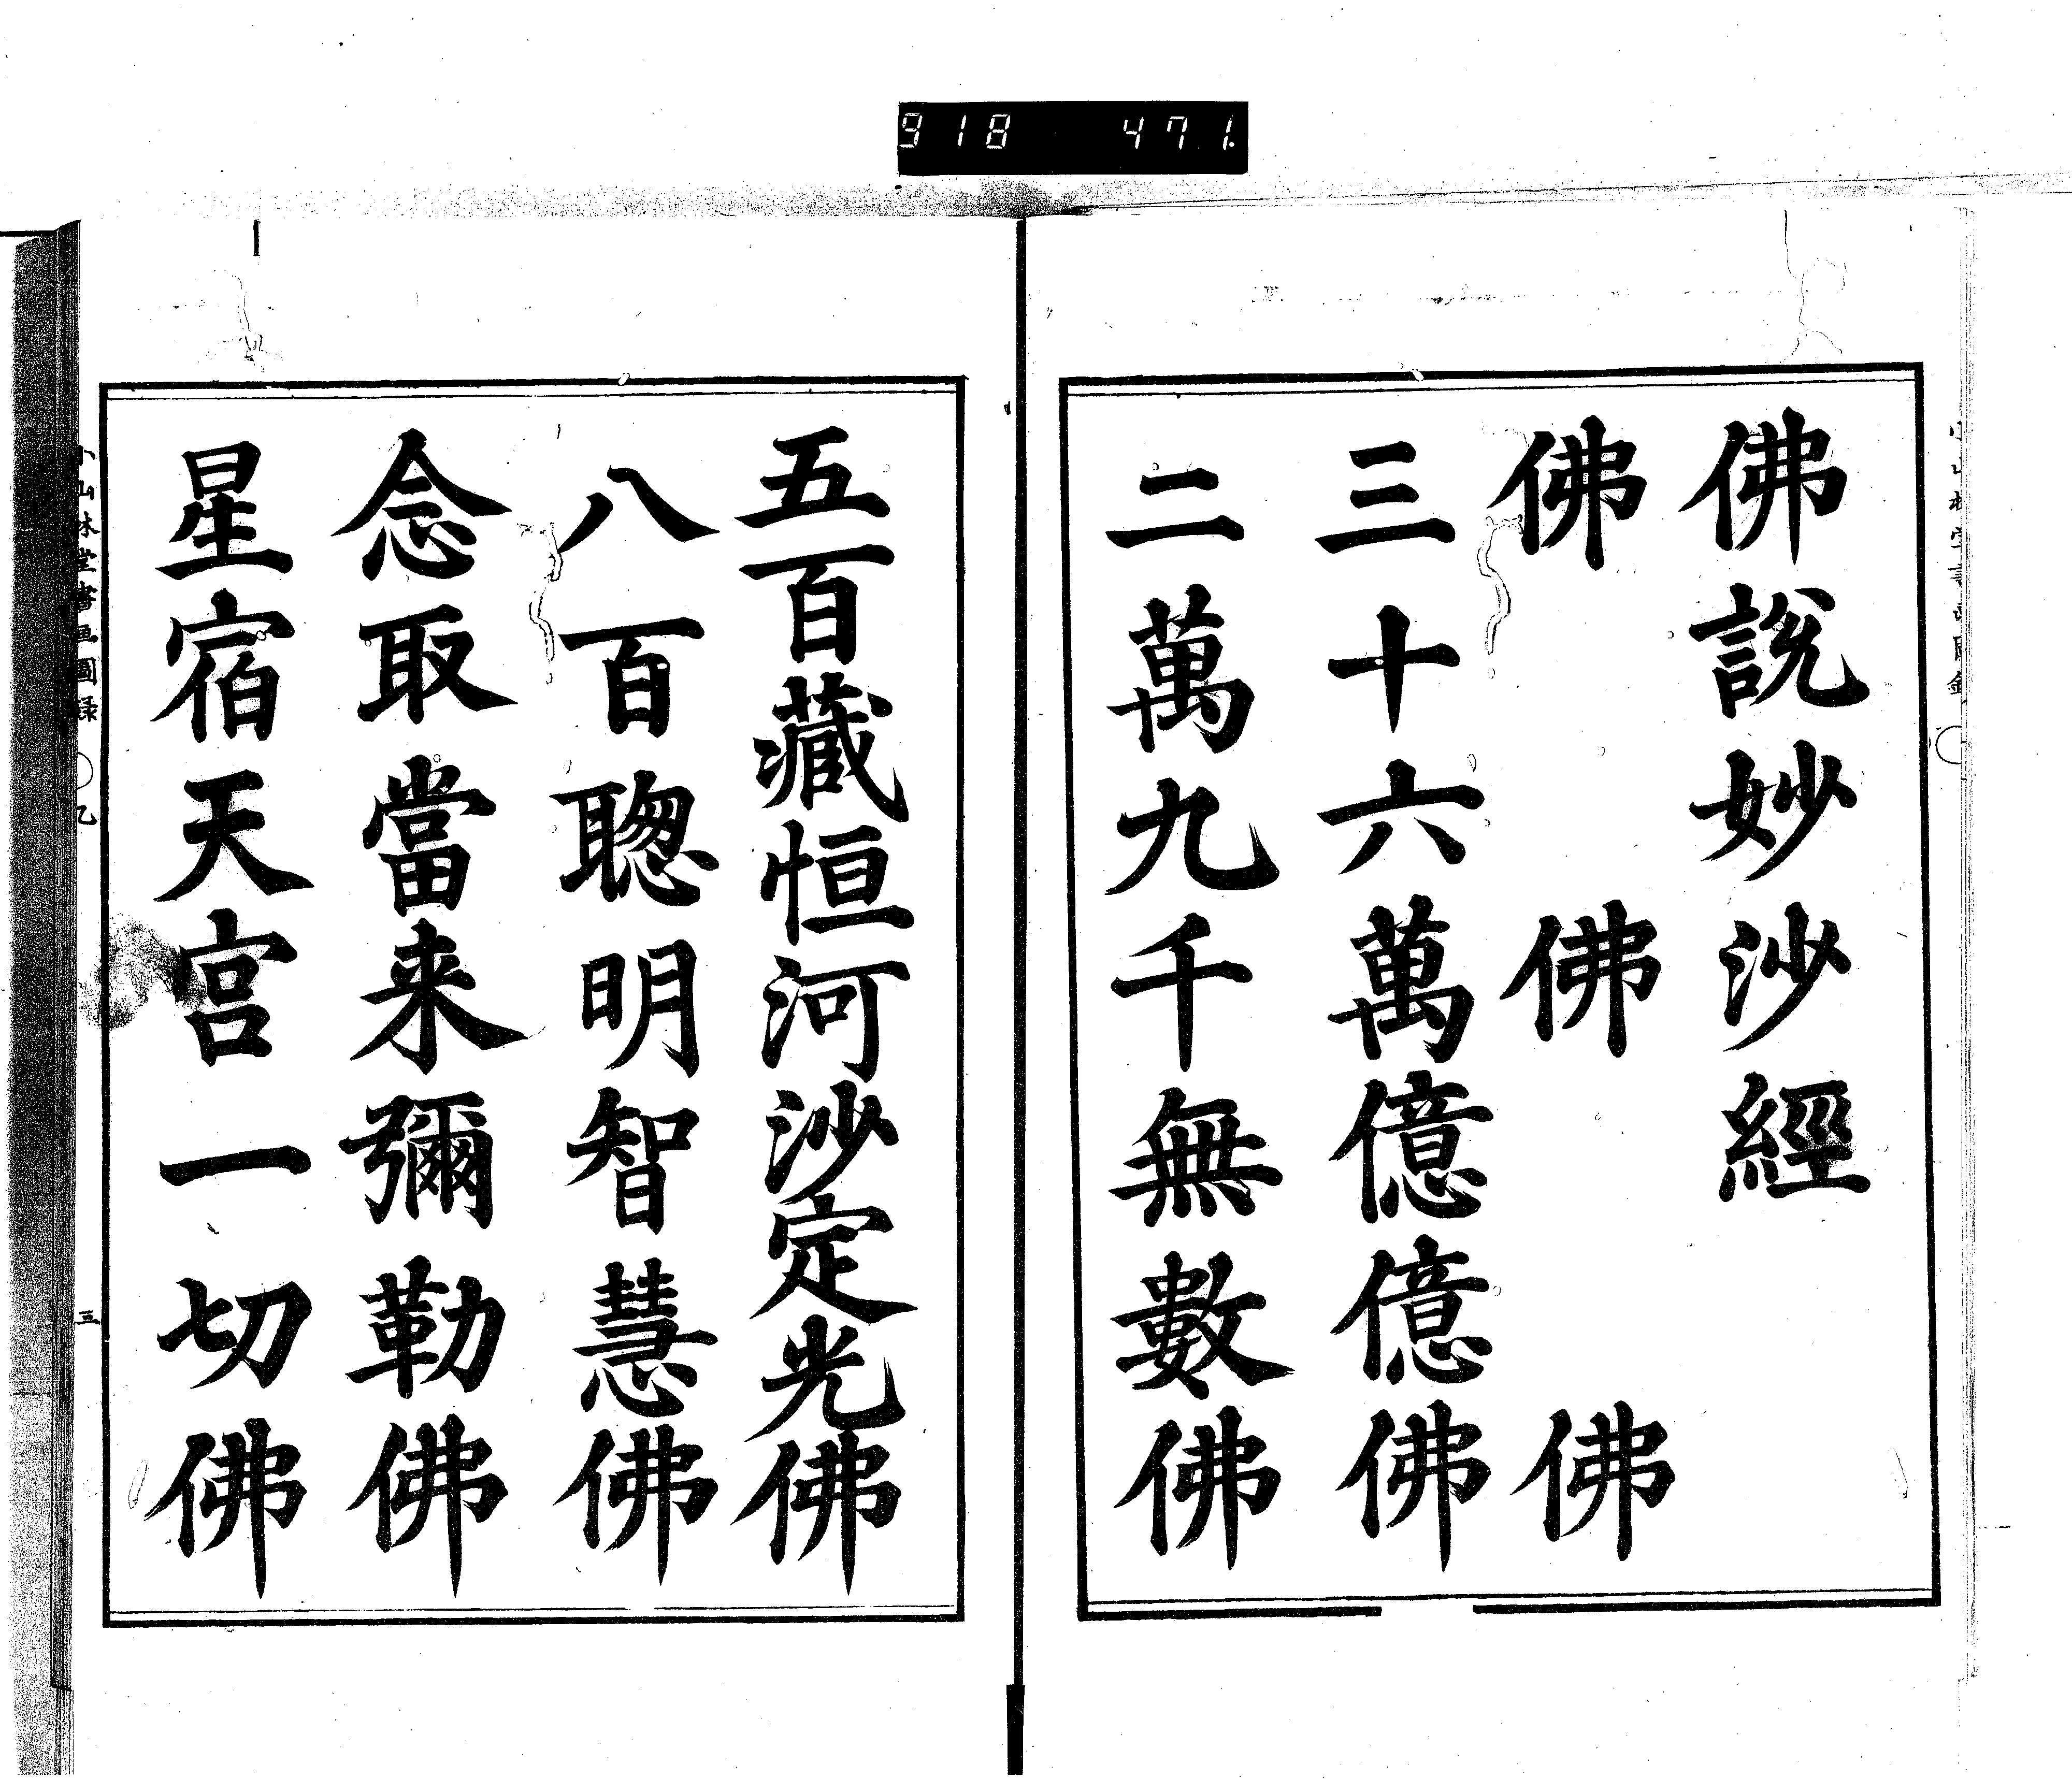 918 471.
佛說妙沙經
佛 佛 佛
三十六萬億億佛
二萬九千無數佛
五百藏恒河沙定光佛
八百聰明智慧佛
念取當来彌勒佛
星宿天宮一切佛
小山林堂書画圖録 乙 三